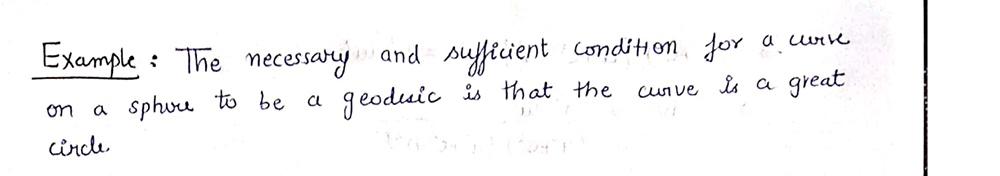 Example : The necessary and sufficient condition for a curve
on a sphere to be a geodesic is that the curve is a great
circle.